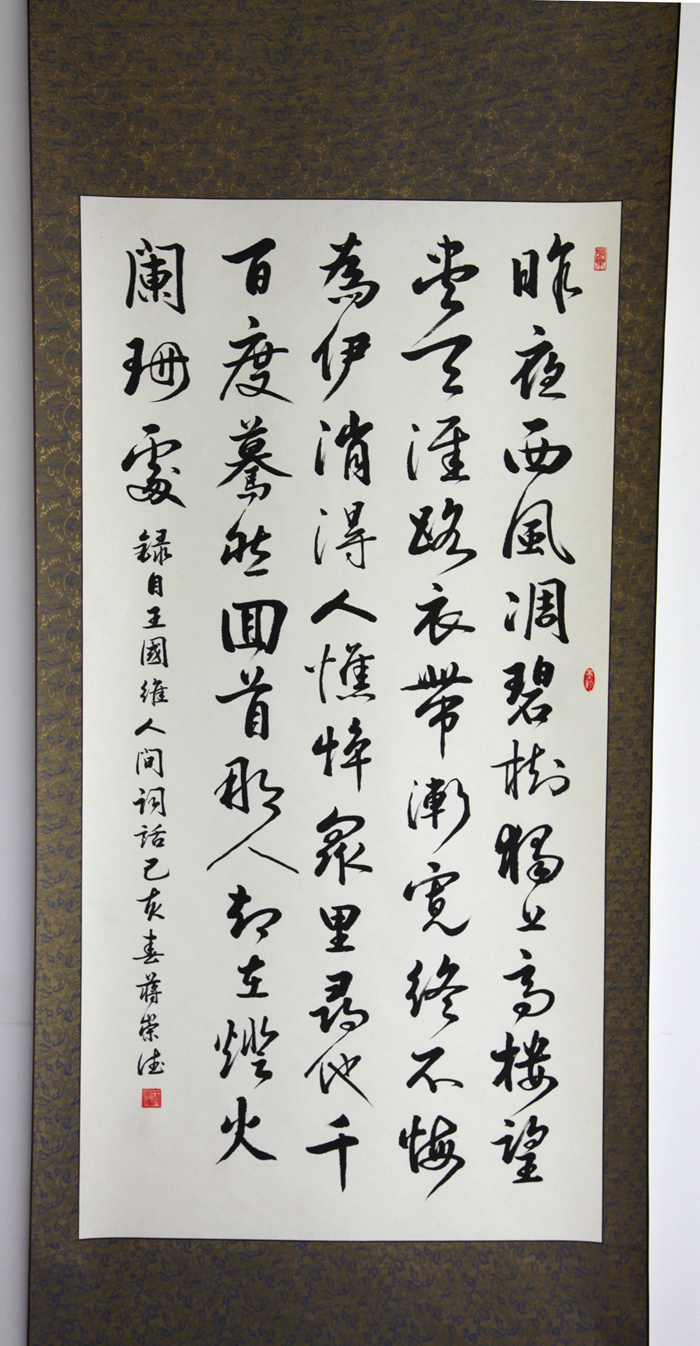 昨夜西風凋碧樹獨上高樓望
盡天涯路衣帶漸寬終不悔
為伊消得人憔悴眾里尋他千
百度驀然回首那人却在燈火
闌珊處
錄自王國維人間詞話己亥春蔣